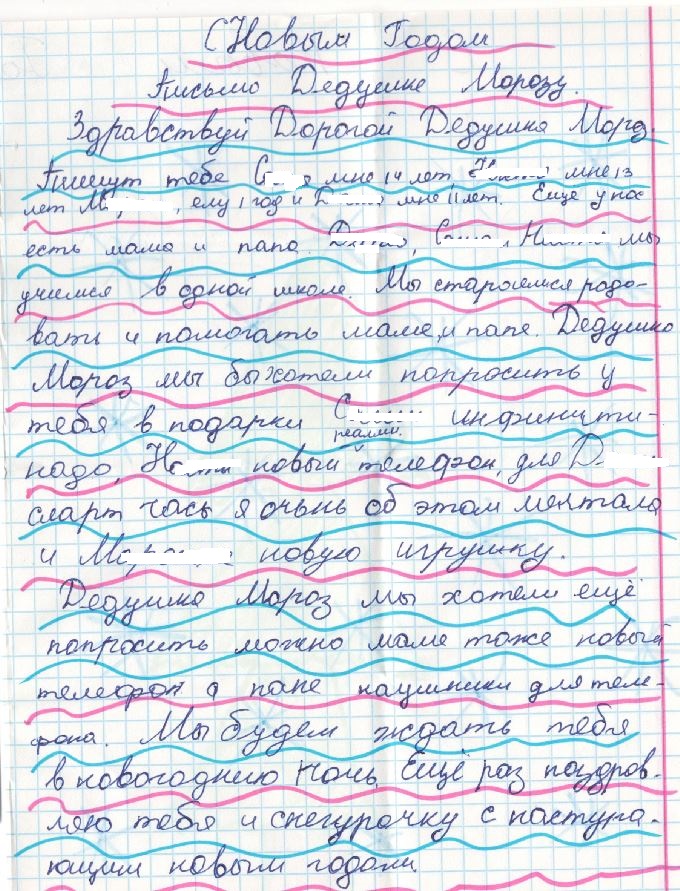 С Новым Годом
Письмо Дедушке Морозу.
Здравствуй Дорогой Дедушка Мороз.
Пишут тебе С я мне 14 лет, мне 13
лет М , ему 1 год и мне 11 лет. Еще у нас
есть мама и папа. мы
учимся в одной школе. Мы стараемся радо-
вать и помогать маме, и папе. Дедушка
Мороз мы бы хотели попросить у
тебя в подарки С инфинити-
реалми.
надо, новый телефон, для Д
смарт часы я очень об этом мечтала
и новую игрушку.
Дедушка Мороз мы хотели ещё
попросить можно маме тоже новый
телефон а папе наушники для теле-
фона. Мы будем ждать тебя
в новогоднию ночь. Ещё раз поздров-
ляю тебя и снегурачку с наступа-
ющим новым годом.